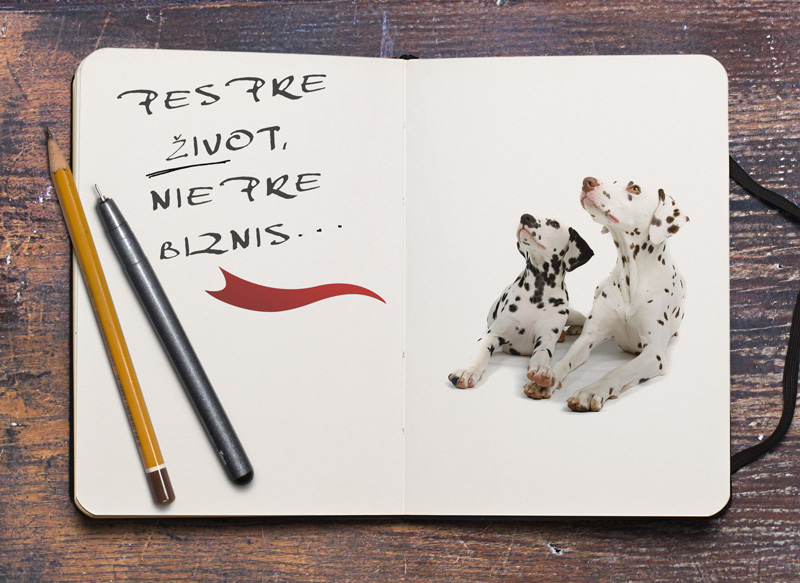 PES PRE
ŽIVOT,
NIE PRE
BIZNIS...